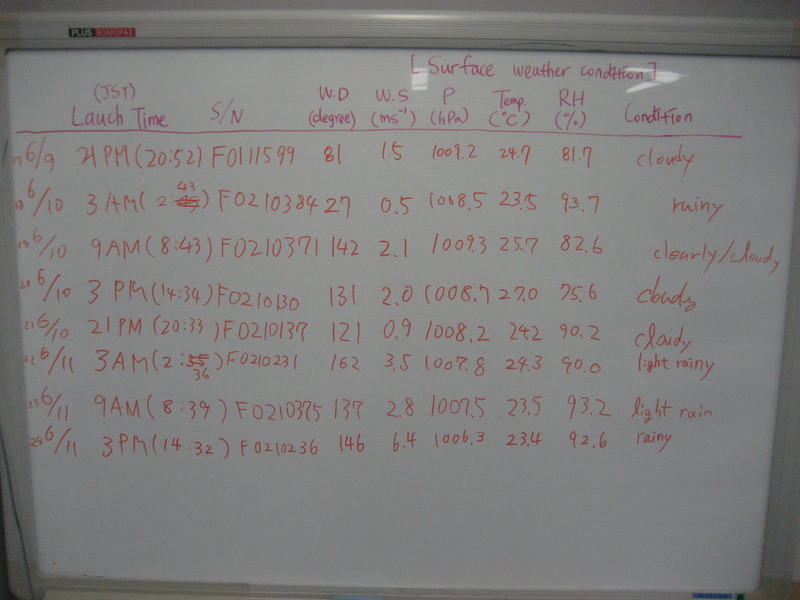 PLUS BOARDFAX
[Surface weather condition]
(JST) Lauch Time S/N W.D (degree) W.S (ms⁻¹) P (hPa) Temp. (°C) RH (%) Condition
17 6/9 21PM (20:52) F0111599 81 1.5 1009.2 24.7 81.7 cloudy
18 6/10 3AM (2:43) F0210384 27 0.5 1008.5 23.5 93.7 rainy
19 6/10 9AM (8:43) F0210371 142 2.1 1009.3 25.7 82.6 clearly/cloudy
20 6/10 3PM (14:34) F0210130 131 2.0 1008.7 27.0 75.6 cloudy
21 6/10 21PM (20:33) F0210137 121 0.9 1008.2 242 90.2 cloudy
22 6/11 3AM (2:36) F0210231 162 3.5 1007.8 24.3 90.0 light rainy
23 6/11 9AM (8:39) F0210375 137 2.8 1007.5 23.5 93.2 light rain
24 6/11 3PM (14:32) F0210236 146 6.4 1006.3 23.4 92.6 rainy